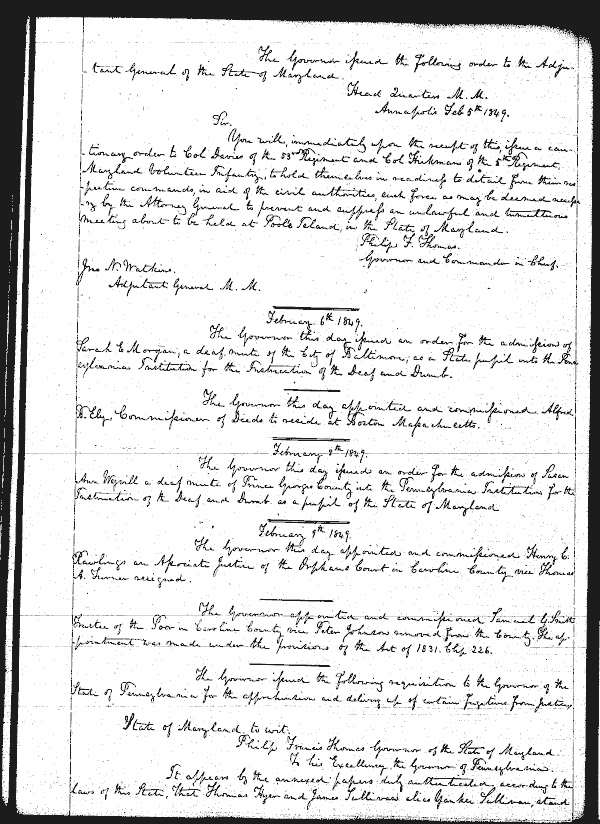 The Governor issued the following order to the Adju-
tant General of the State of Maryland.
Head Quarters M. M.
Annapolis Feb 5th 1849.
Sir.
You will, immediately upon the receipt of this, issue a cau-
tionary order to Col Davies of the 53rd Regiment and Col Hickman of the 5th Regiment,
Maryland Volunteer Infantry, to hold themselves in readiness to detail from their res
pective commands, in aid of the civil authorities, such force as may be deemed necessa
ry by the Attorney General to prevent and suppress an unlawful and tumultuous
meeting about to be held at Pool's Island, in the State of Maryland.
Philip F. Thomas.
Governor and Commander in Chief.
Jno N. Watkins.
Adjutant General M. M.
February 6th 1849.
The Governor this day issued an order for the admission of
Sarah E Morgan, a deaf mute of the City of Baltimore, as a State pupil into the Penn
sylvania Institution for the Instruction of the Deaf and Dumb.
The Governor this day appointed and commissioned Alfred
B. Ely, Commissioner of Deeds to reside at Boston Massachusetts.
February 8th 1849.
The Governor this day issued an order for the admission of Susan
Ann a deaf mute of Prince Georges County into the Pennsylvania Institution for the
Instruction of the Deaf and Dumb as a pupil of the State of Maryland
February 9th 1849.
The Governor this day appointed and commissioned Henry C.
Rawlings an Associate Justice of the Orphans Court in Caroline County vice Thomas
A. Turner resigned.
The Governor appointed and commissioned Samuel G. Smith
Trustee of the Poor in Caroline County vice Peter Johnson removed from the County. The ap-
pointment was made under the provisions of the Act of 1831. Chp 226.
The Governor issued the following requisition to the Governor of the
State of Pennsylvania for the apprehension and delivery up of certain fugitives from Justice,
State of Maryland to wit.
Philip Francis Thomas Governor of the State of Maryland.
To his Excellency the Governor of Pennsylvania.
It appears by the annexed papers duly authenticated, according to the
laws of this State, that Thomas Hyer and James Sullivan alias Yankee Sullivan, stand